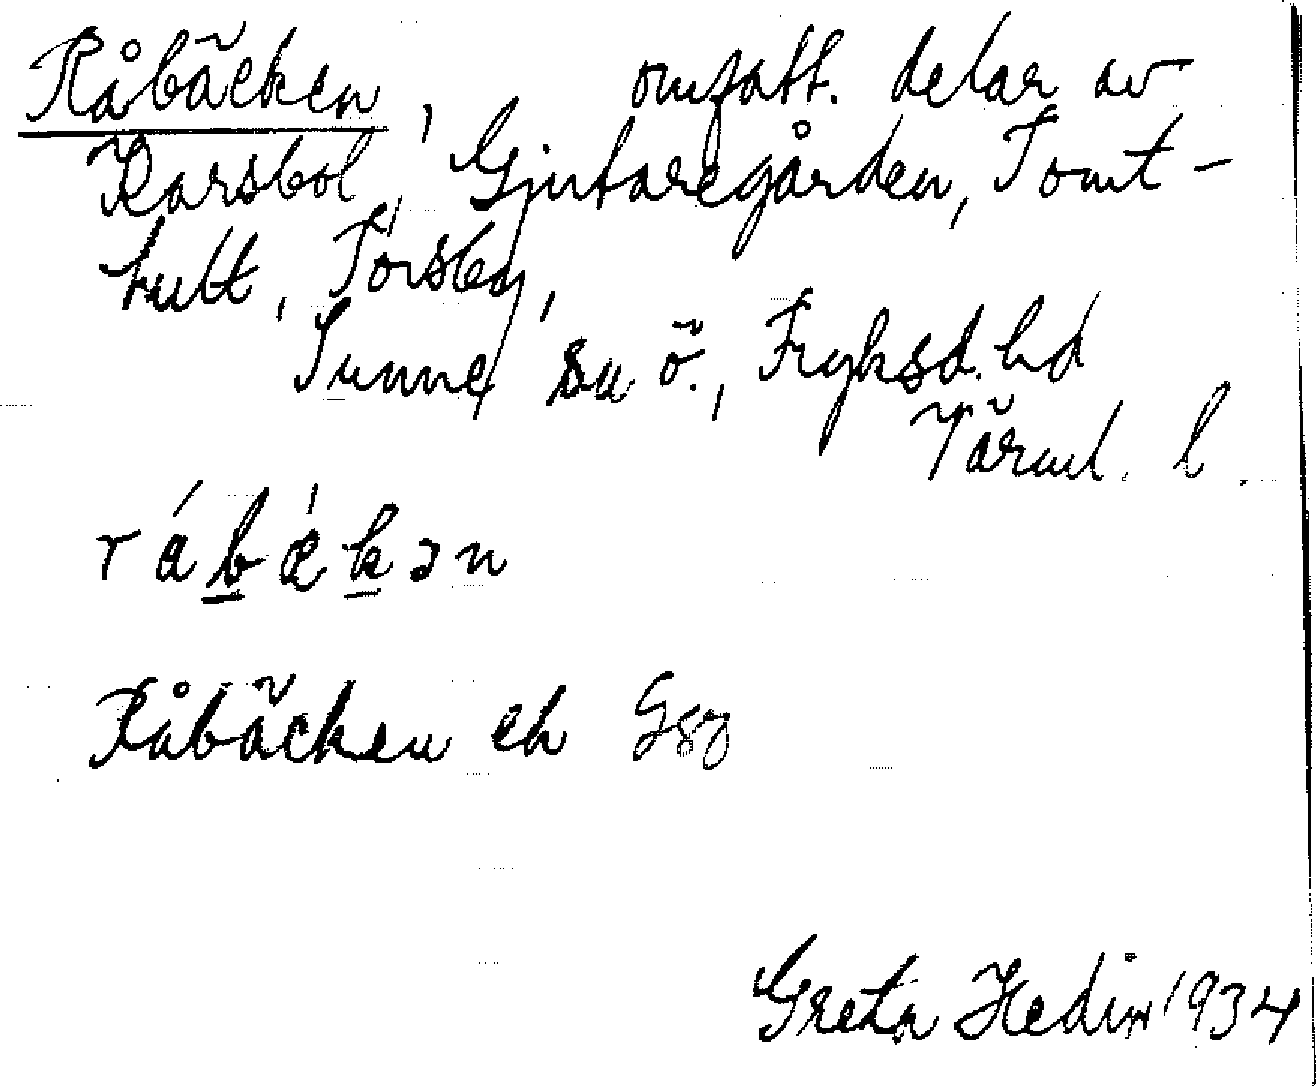 Råbäcken, omfatt. delar av
Karsbol, Gjutaregården, Tomt-
hult, Torsby,
Sunne sn ö., Fryksd. hd
Värml. l.
rábǽkən
Råbäcken ek
Greta Hedin 1934